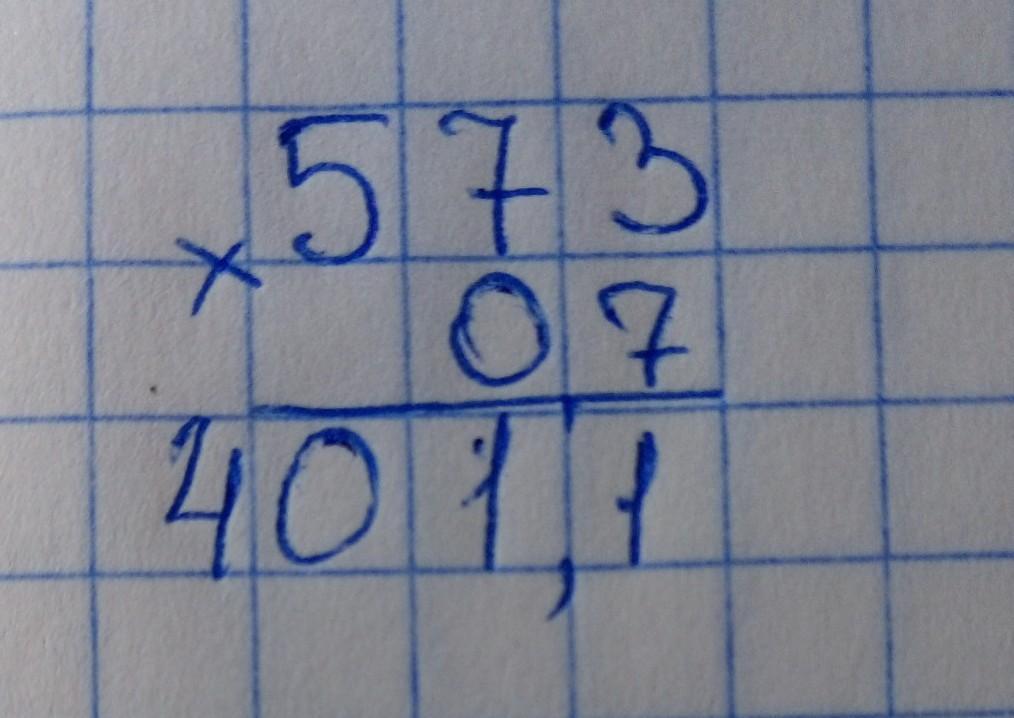 573
× 07
401,1